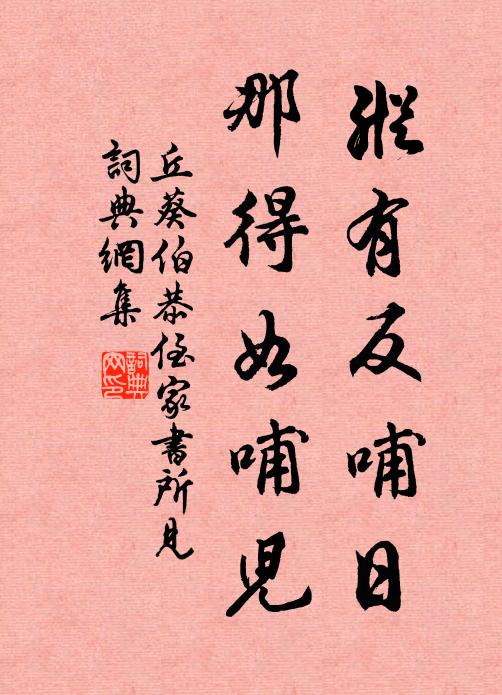 縱有反哺日
那得如哺兒
丘葵伯恭侄家書所見
詞典網集
詞典網印